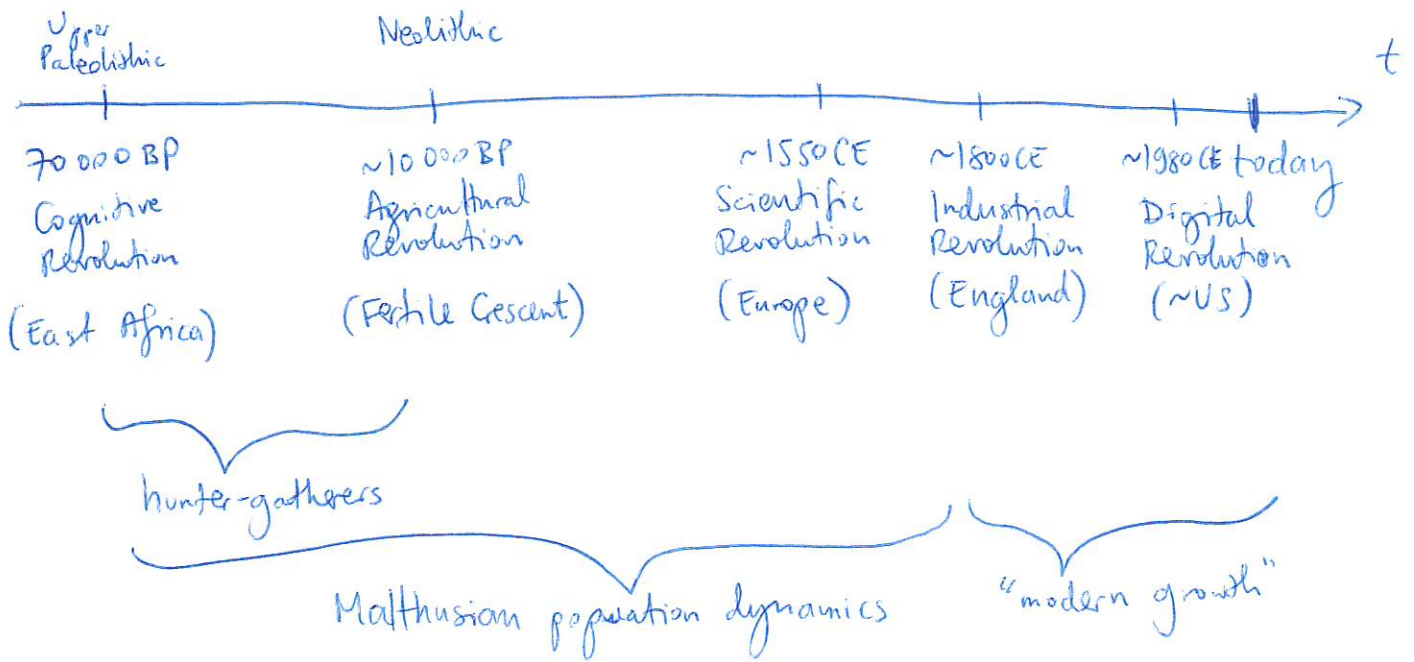 Upper
Paleolithic
Neolithic
t
70 000 BP
Cognitive
Revolution
(East Africa)
~10 000 BP
Agricultural
Revolution
(Fertile Crescent)
~1550 CE
Scientific
Revolution
(Europe)
~1800 CE
Industrial
Revolution
(England)
~1980 CE
Digital
Revolution
(~US)
today
hunter-gatherers
Malthusian population dynamics
"modern growth"